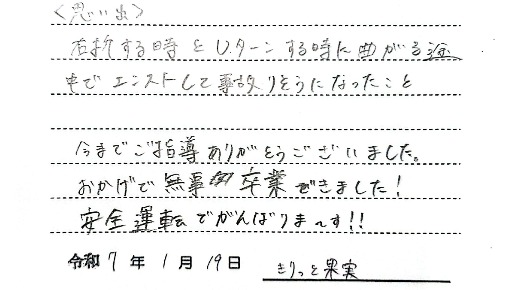 <思い出>
右折する時とUターンする時に曲がる途
中でエンストして事故りそうになったこと
今までご指導ありがとうございました。
おかげで無事卒業できました!
安全運転でがんばりまーす!!
令和7年1月19日 きりっと果実